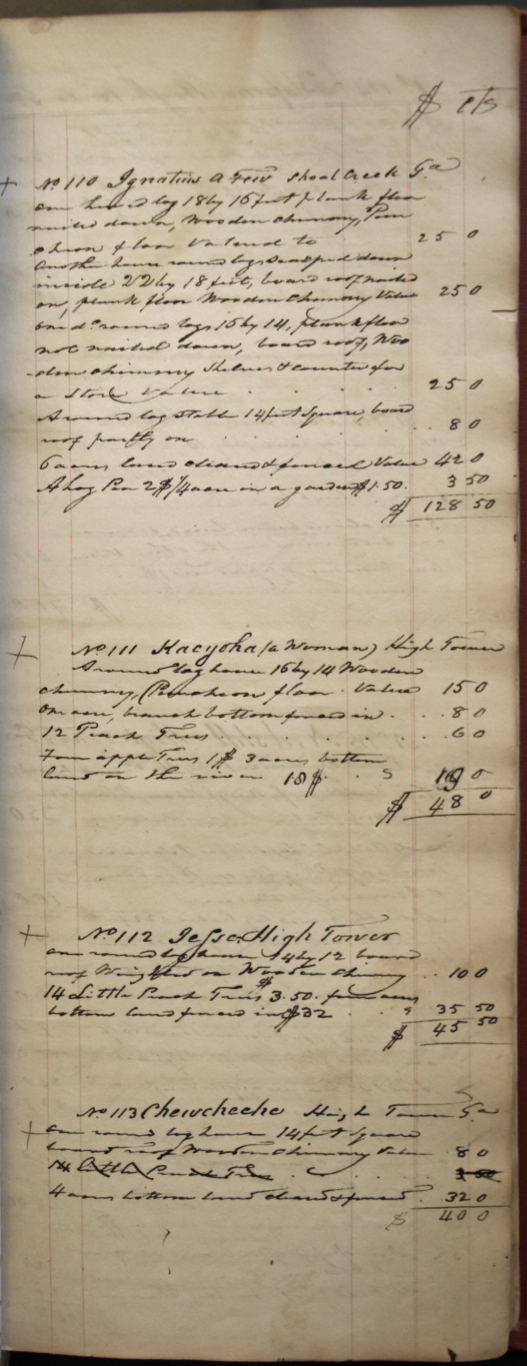 $ cts
+ No 110 Ignatius A Few Shoal Creek Ga
one hewed log 18 by 16 feet plank floor
nailed down, Wooden chimney, Pun
cheon floor Valued to 25 0
Another house round logs scalped down
inside 22 by 18 feet, board roof nailed
on, plank floor Wooden Chimney Value 25 0
one do round logs 16 by 14, plank floor
not nailed down, board roof, Woo
-den chimney Shelves & counter for
a Store Value . . . 25 0
A round log stable 14 feet Square, board
roof partly on . . . . 8 0
6 acres land cleared & fenced Value 42 0
A hog Pen 2$ 1/4 acre in a garden $1.50. 3 50
$ 128 50
+ No 111 Kacyoha (a Woman) High Tower
A round log house 16 by 14 Wooden
chimney, Puncheon floor. Value 15 0
one acre, branch bottom fenced in . . . 8 0
12 Peach Trees . . . . . . 6 0
Four apple Trees 1$ 3 acres bottom
land on the river 18$ . . 19 0
$ 48 0
+ No 112 Jesse High Tower
one round log house 14 by 12 board
roof Weighted on Wooden Chimney . . 10 0
14 Little Peach Trees $3.50. four acres
bottom land fenced in $32 . . 35 50
$ 45 50
No 113 Chewcheche High Tower Ga
+ one round log house 14 feet Square
board roof Wooden Chimney Value 8 0
14 Little Peach Trees . . . . 3 50
4 acres bottom land cleared & fenced . 32 0
$ 40 0